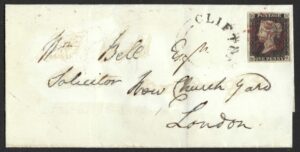 CLIFTON
POSTAGE
Wm Bell Esqr
Solicitor New Church Yard
London
ONE PENNY